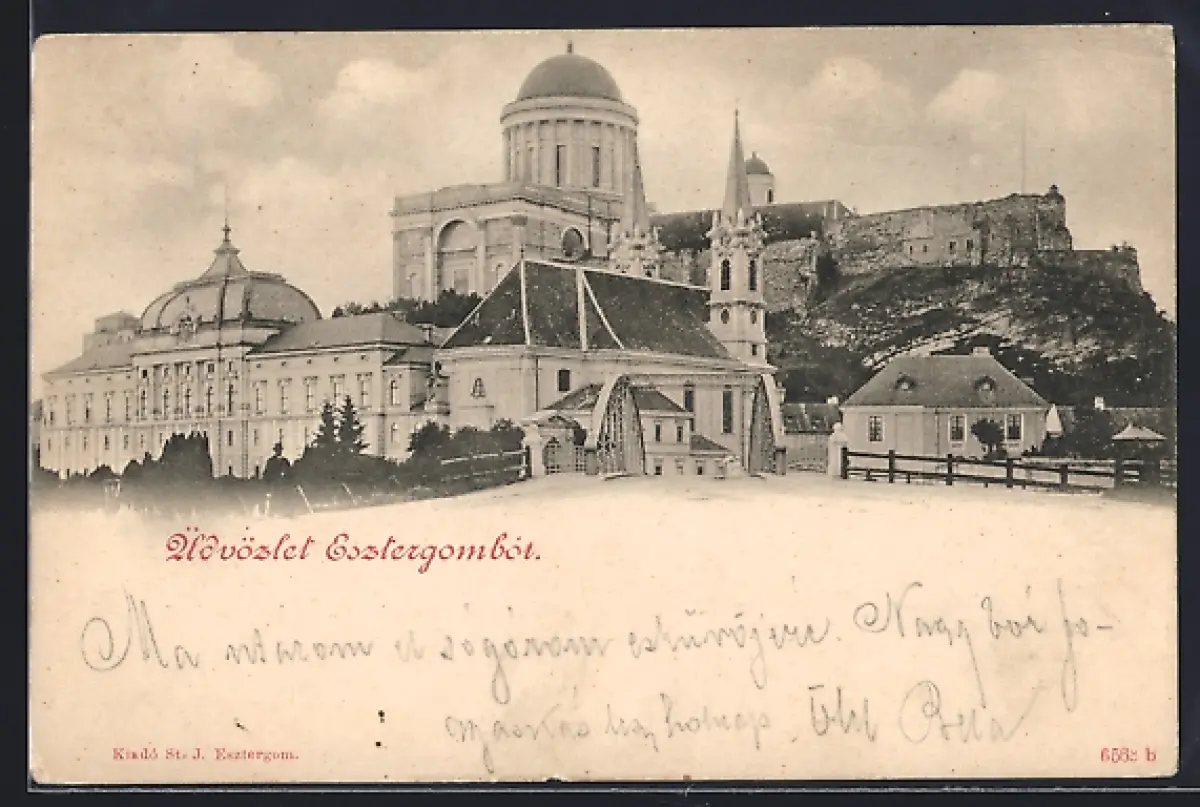 Üdvözlet Esztergomból.
Ma utazom el sógórom esküvőjére. Nagy bor fo-
gyasztás lesz holnap. Ölel Béla
Kiadó St. J. Esztergom.
6563 b